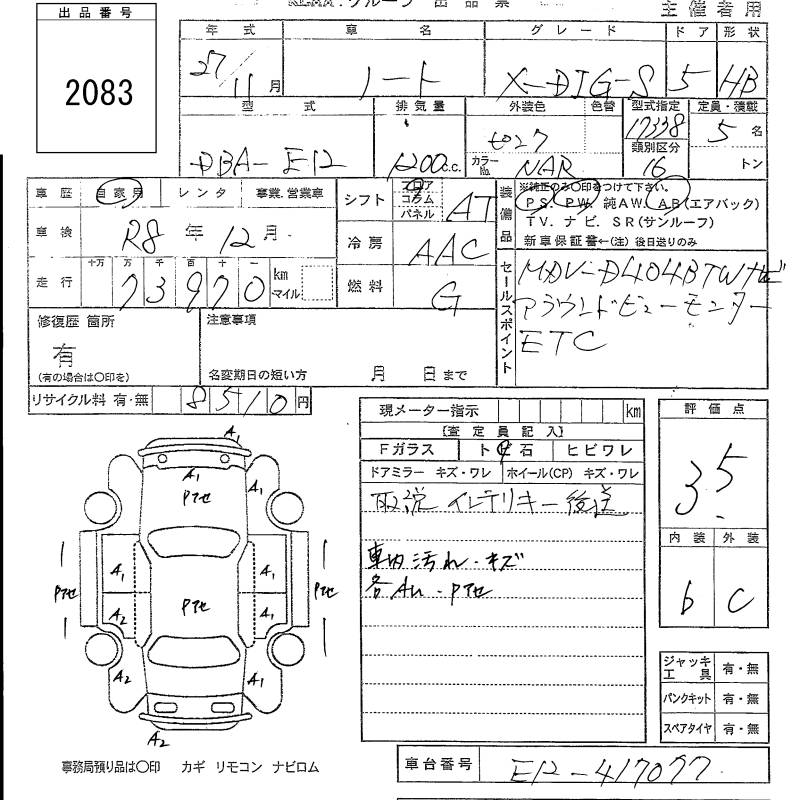 出品番号
2083
グループ 出品票
主催者用
年式 車名 グレード ドア 形状
27/11月 ノート X-DIG-S 5 HB
型式 排気量 外装色 色替 型式指定 定員・積載
DBA-E12 1200c.c. カラーNo. NAR 17338 類別区分 16 5名 トン
車歴 自家用 レンタ 事業.営業車
シフト フロア コラム パネル AT
装備品 ※純正のみ〇印をつけて下さい。
PS. PW. 純AW. AB(エアバック)
TV. ナビ. SR(サンルーフ)
新車保証書←(注)後日送りのみ
車検 R8年12月
冷房 AAC
走行 十万 万 千 百 十 一 73970 km マイル
燃料 G
セールスポイント MDV-D404BTWナビ
アラウンドビューモニター
ETC
修復歴 箇所 注意事項
有
(有の場合は〇印を) 名変期日の短い方 月 日まで
リサイクル料 有・無 8510円
現メーター指示 km
【査定員記入】
Fガラス トビ石 ヒビワレ
ドアミラー キズ・ワレ ホイール(CP) キズ・ワレ
取説 インテリキー後送
車内汚れ・キズ
各AU・Pアセ
評価点
3.5
内装 外装
b C
A1
A1 Pアセ A1
A1 A1
Pアセ Pアセ Pアセ
A2 A1
A2 A1
A2
ジャッキ工具 有・無
パンクキット 有・無
スペアタイヤ 有・無
事務局預り品は〇印 カギ リモコン ナビロム
車台番号 E12-417077